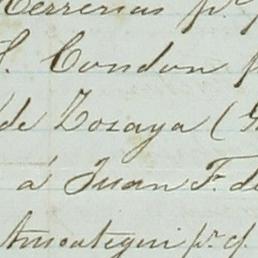 Herrerias pr. p
S. Condon p
de Zozaya (G
á Juan F. de
Amoategui pr. q.